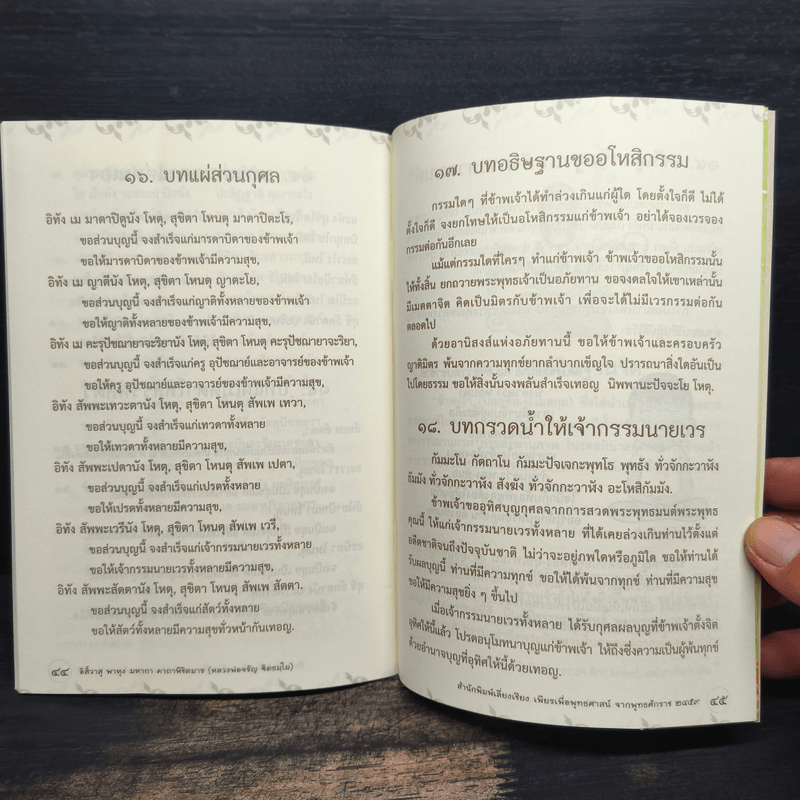 ๑๖. บทแผ่ส่วนกุศล
อิทัง เม มาตาปิตูนัง โหตุ, สุขิตา โหนตุ มาตาปิตะโร,
ขอส่วนบุญนี้ จงสำเร็จแก่มารดาบิดาของข้าพเจ้า
ขอให้มารดาบิดาของข้าพเจ้ามีความสุข,
อิทัง เม ญาตีนัง โหตุ, สุขิตา โหนตุ ญาตะโย,
ขอส่วนบุญนี้ จงสำเร็จแก่ญาติทั้งหลายของข้าพเจ้า
ขอให้ญาติทั้งหลายของข้าพเจ้ามีความสุข,
อิทัง เม คะรุปัชฌายาจะริยานัง โหตุ, สุขิตา โหนตุ คะรุปัชฌายาจะริยา,
ขอส่วนบุญนี้ จงสำเร็จแก่ครู อุปัชฌาย์และอาจารย์ของข้าพเจ้า
ขอให้ครู อุปัชฌาย์และอาจารย์ของข้าพเจ้ามีความสุข,
อิทัง สัพพะเทวะตานัง โหตุ, สุขิตา โหนตุ สัพเพ เทวา,
ขอส่วนบุญนี้ จงสำเร็จแก่เทวดาทั้งหลาย
ขอให้เทวดาทั้งหลายมีความสุข,
อิทัง สัพพะเปตานัง โหตุ, สุขิตา โหนตุ สัพเพ เปตา,
ขอส่วนบุญนี้ จงสำเร็จแก่เปรตทั้งหลาย
ขอให้เปรตทั้งหลายมีความสุข,
อิทัง สัพพะเวรีนัง โหตุ, สุขิตา โหนตุ สัพเพ เวรี,
ขอส่วนบุญนี้ จงสำเร็จแก่เจ้ากรรมนายเวรทั้งหลาย
ขอให้เจ้ากรรมนายเวรทั้งหลายมีความสุข,
อิทัง สัพพะสัตตานัง โหตุ, สุขิตา โหนตุ สัพเพ สัตตา.
ขอส่วนบุญนี้ จงสำเร็จแก่สัตว์ทั้งหลาย
ขอให้สัตว์ทั้งหลายมีความสุขทั่วหน้ากันเทอญ.
๔๔ อิติวาสุ พาหุง มหากา คาถาพิชิตมาร (หลวงพ่อจรัญ ฐิตธมฺโม)
๑๗. บทอธิษฐานขออโหสิกรรม
กรรมใดๆ ที่ข้าพเจ้าได้ทำล่วงเกินแก่ผู้ใด โดยตั้งใจก็ดี ไม่ได้
ตั้งใจก็ดี จงยกโทษให้เป็นอโหสิกรรมแก่ข้าพเจ้า อย่าได้จองเวรจอง
กรรมต่อกันอีกเลย
แม้แต่กรรมใดที่ใครๆ ทำแก่ข้าพเจ้า ข้าพเจ้าขออโหสิกรรมนั้น
ให้ทั้งสิ้น ยกถวายพระพุทธเจ้าเป็นอภัยทาน ขอจงดลใจให้เขาเหล่านั้น
มีเมตตาจิต คิดเป็นมิตรกับข้าพเจ้า เพื่อจะได้ไม่มีเวรกรรมต่อกัน
ตลอดไป
ด้วยอานิสงส์แห่งอภัยทานนี้ ขอให้ข้าพเจ้าและครอบครัว
ญาติมิตร พ้นจากความทุกข์ยากลำบากเข็ญใจ ปรารถนาสิ่งใดอันเป็น
ไปโดยธรรม ขอให้สิ่งนั้นจงพลันสำเร็จเทอญ นิพพานะปัจจะโย โหตุ.
๑๘. บทกรวดน้ำให้เจ้ากรรมนายเวร
กัมมะโน กัตถาโน กัมมะปัจเจกะพุทโธ พุทธัง ทั่วจักกะวาฬัง
ธัมมัง ทั่วจักกะวาฬัง สังฆัง ทั่วจักกะวาฬัง อะโหสิกัมมัง.
ข้าพเจ้าขออุทิศบุญกุศลจากการสวดพระพุทธมนต์พระพุทธ
คุณนี้ ให้แก่เจ้ากรรมนายเวรทั้งหลาย ที่ได้เคยล่วงเกินท่านไว้ตั้งแต่
อดีตชาติจนถึงปัจจุบันชาติ ไม่ว่าจะอยู่ภพใดหรือภูมิใด ขอให้ท่านได้
รับผลบุญนี้ ท่านที่มีความทุกข์ ขอให้ได้พ้นจากทุกข์ ท่านที่มีความสุข
ขอให้มีความสุขยิ่ง ๆ ขึ้นไป
เมื่อเจ้ากรรมนายเวรทั้งหลาย ได้รับกุศลผลบุญที่ข้าพเจ้าตั้งจิต
อุทิศให้นี้แล้ว โปรดอนุโมทนาบุญแก่ข้าพเจ้า ให้ถึงซึ่งความเป็นผู้พ้นทุกข์
ด้วยอำนาจบุญที่อุทิศให้นี้ด้วยเทอญ.
สำนักพิมพ์เลี่ยงเชียง เพียรเพื่อพุทธศาสน์ จากพุทธศักราช ๒๔๕๙ ๔๕